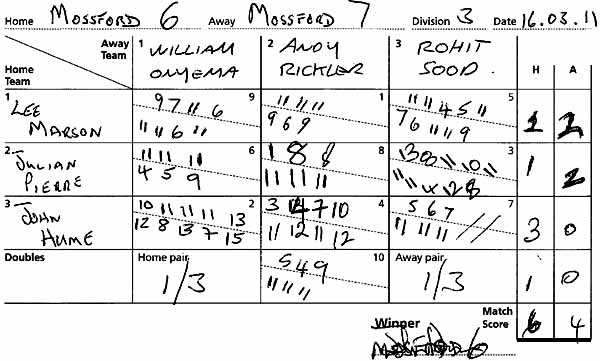 Home MOSSFORD 6 Away MOSSFORD 7 Division 3 Date 16.03.11
Away Team 1 WILLIAM ONYEMA 2 ANDY RICKLER 3 ROHIT SOOD H A
Home Team
1 LEE MARSON 9 1 5
9 7 11 6 11 11 11 11 11 4 5 11
11 11 6 11 9 6 9 7 6 11 11 9
2 JULIAN PIERRE 6 8 3 1 2
11 11 11 1 8 8
4 5 9 11 11 11
3 JOHN HUME 2 4 7 3 0
10 11 11 11 13 5 6 7
12 8 13 7 15 11 12 11 12 11 11 11
Doubles Home pair 1/3 10 Away pair 1/3 1 0
5 4 9
11 11 11
Winner MOSSFORD 6 Match Score 6 4